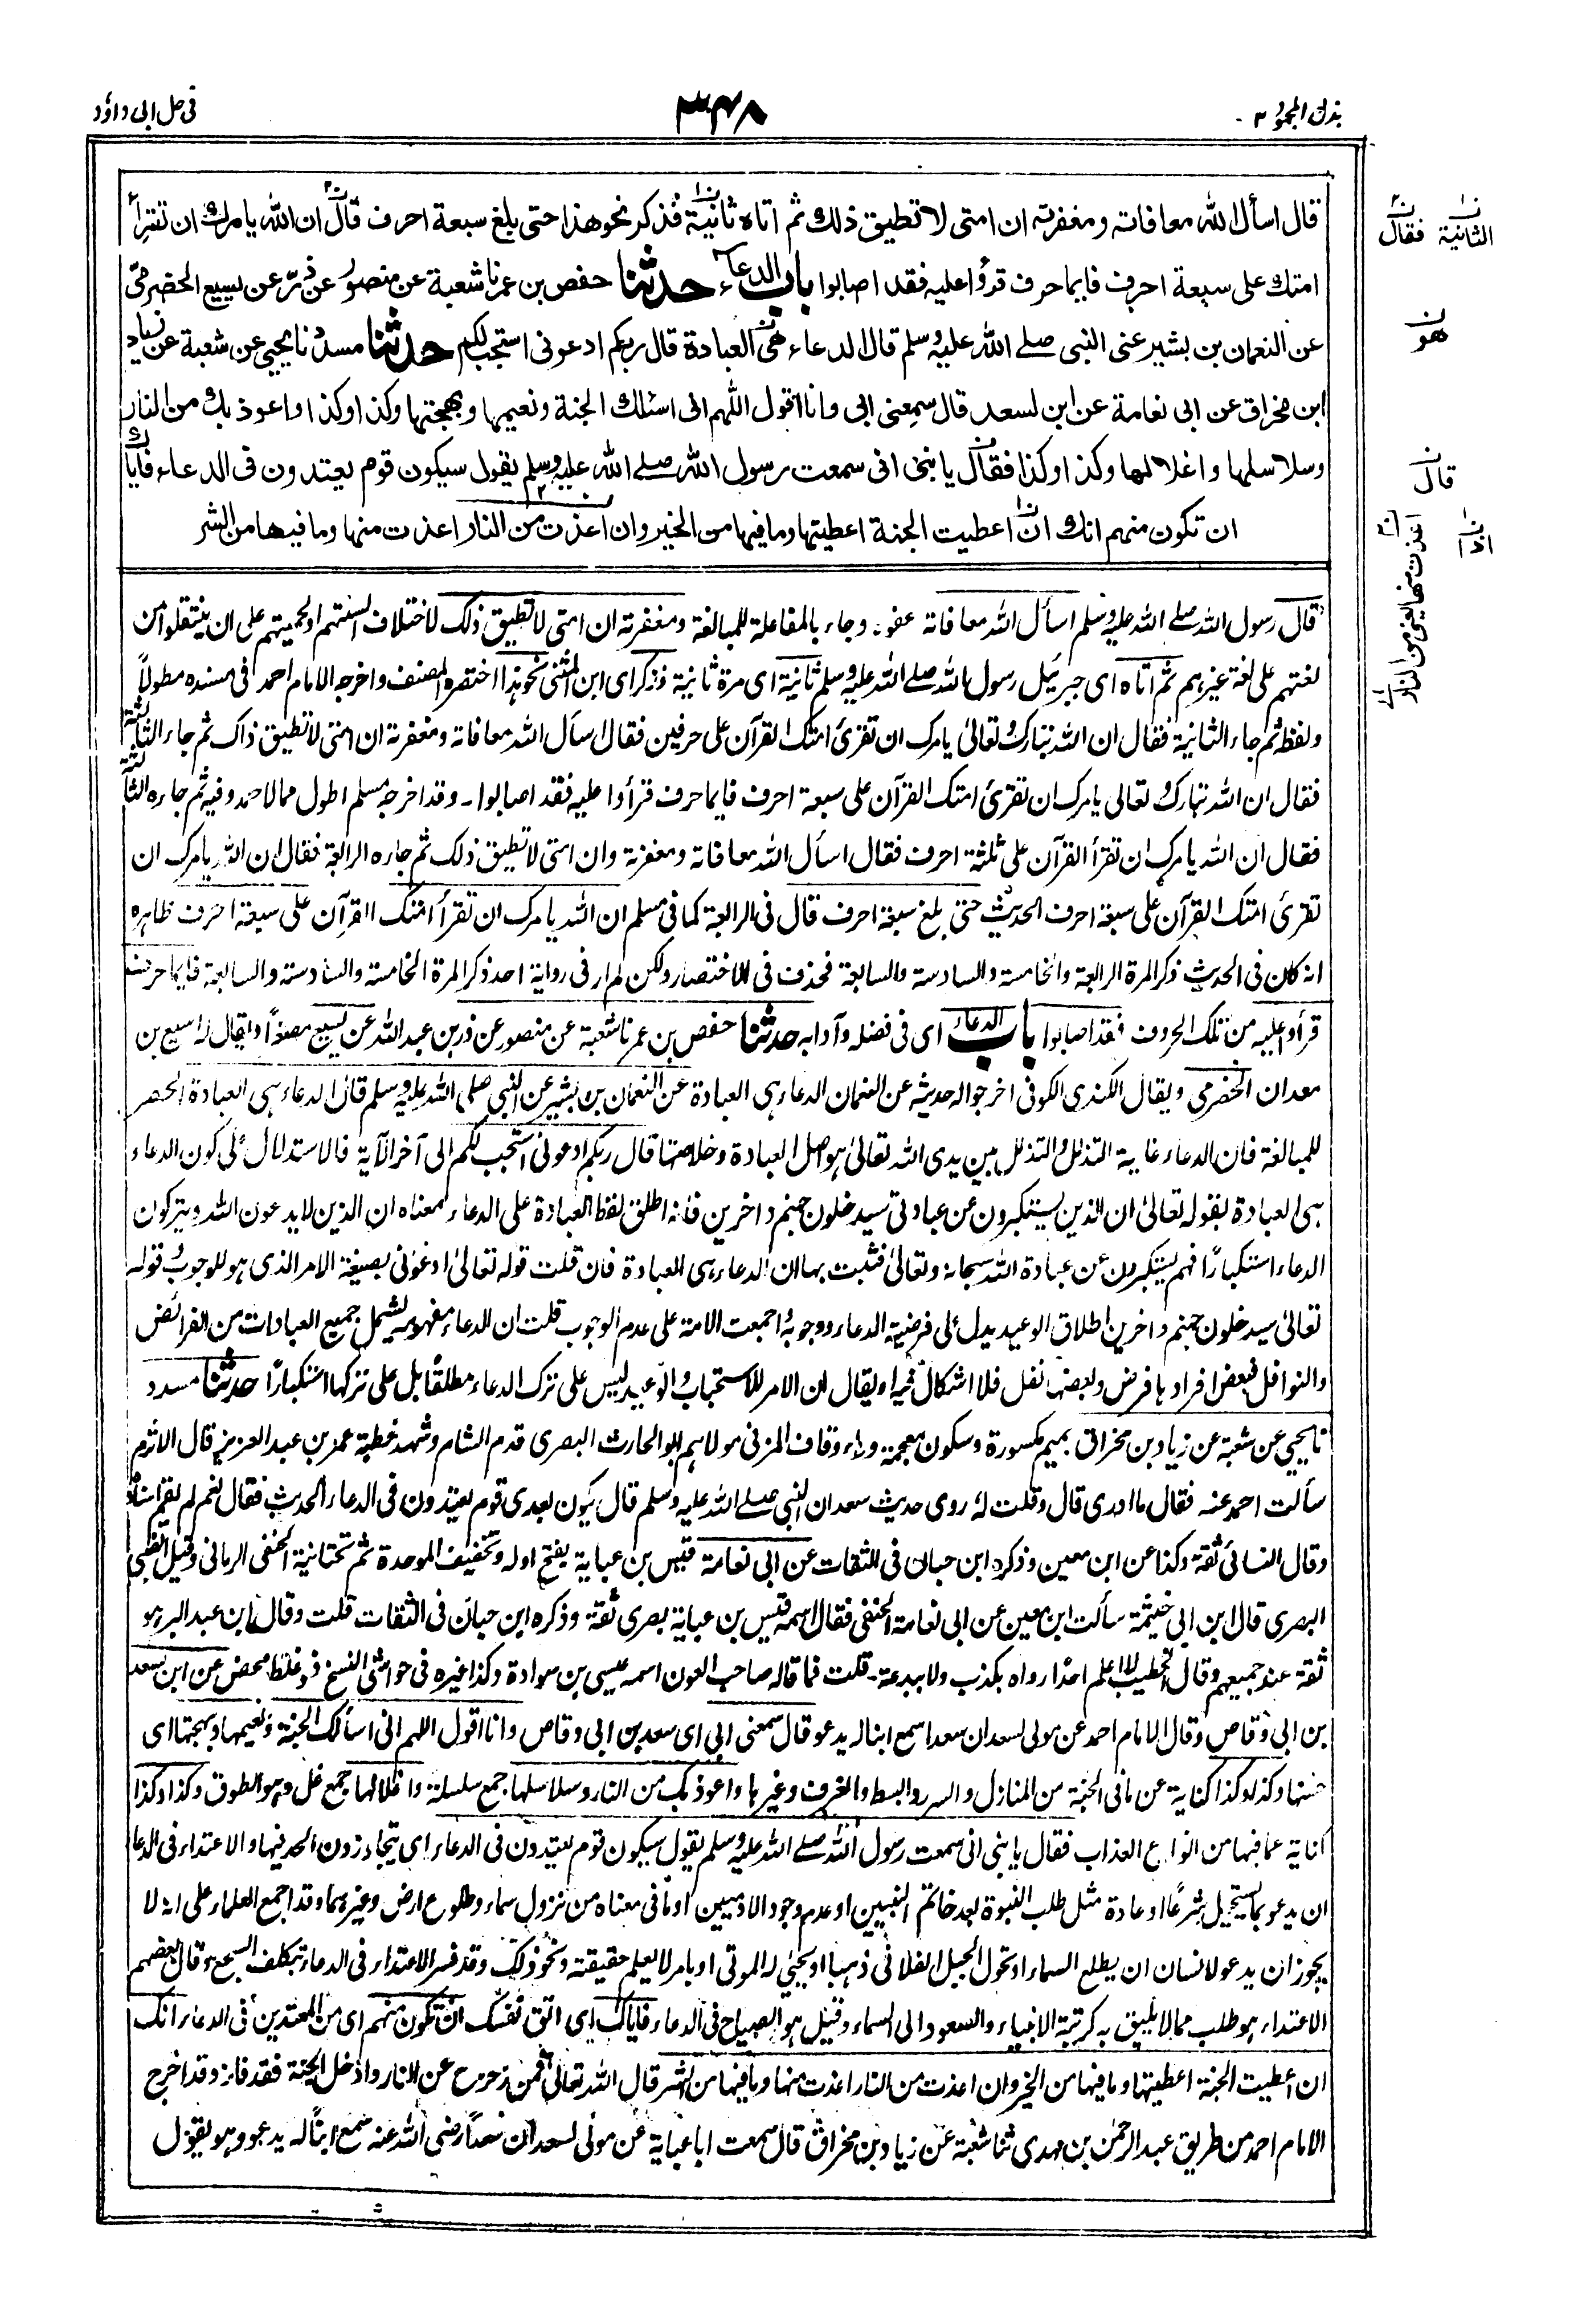 بذل المجهود ٢
٣٤٨
فى حل ابى داؤد
قال اسأل الله معافاته ومغفرته ان امتى لا تطيق ذلك ثم اتاه ثانية فذكر نحو هذا حتى بلغ سبعة احرف قال ان الله يامرك ان تقرأ
امتك على سبعة احرف فايما حرف قرؤا عليه فقد اصابوا باب الدعاء حدثنا حفص بن عمر نا شعبة عن منصور عن ذر عن يسيع الحضرمى
عن النعمان بن بشير عن النبى صلے الله عليه وسلم قال الدعاء هى العبادة قال ربكم ادعونى استجب لكم حدثنا مسدد نا يحيى عن شعبة عن زياد
ابن مخراق عن ابى نعامة عن ابن لسعد قال سمعنى ابى وانا اقول اللهم انى اسئلك الجنة ونعيمها وبهجتها وكذا وكذا واعوذ بك من النار
وسلاسلها واغلالها وكذا وكذا فقال يا بنى انى سمعت رسول الله صلے الله عليه وسلم يقول سيكون قوم يعتدون فى الدعاء فاياك
ان تكون منهم انك ان اعطيت الجنة اعطيتها وما فيها من الخير وان اعذت من النار اعذت منها وما فيها من الشر
الثانية
فقال
هو
قال
اذا
اعذت منها يعنى من النار
قال رسول الله صلے الله عليه وسلم اسأل الله معافاته عفوه وجاء بالمفاعلة للمبالغة ومغفرته ان امتى لا تطيق ذلك لاختلاف السنتهم او لحميتهم على ان ينتقلوا من
لغتهم على لغة غيرهم ثم اتاه اى جبرئيل رسول الله صلے الله عليه وسلم ثانية اى مرة ثانية فذكر اى ابن المثنى نحو هذا اختصره المصنف واخرجه الامام احمد فى مسنده مطولاً
ولفظه ثم جاء الثانية فقال ان الله تبارك وتعالى يامرك ان تقرئ امتك القرآن على حرفين فقال اسأل الله معافاته ومغفرته ان امتى لا تطيق ذاك ثم جاء الثالثة
فقال ان الله تبارك وتعالى يامرك ان تقرئ امتك القرآن على سبعة احرف فايما حرف قرأوا عليه فقد اصابوا۔ وقد اخرجه مسلم اطول مما لاحمد وفيه ثم جاءه الثالثة
فقال ان الله يامرك ان تقرأ القرآن على ثلثة احرف فقال اسأل الله معافاته ومغفرته وان امتى لا تطيق ذلك ثم جاءه الرابعة فقال ان الله يامرك ان
تقرئ امتك القرآن على سبعة احرف الحديث حتى بلغ سبعة احرف قال فى الرابعة كما فى مسلم ان الله يامرك ان تقرأ امتك القرآن على سبعة احرف ظاهره
انه كان فى الحديث ذكر المرة الرابعة والخامسة والسادسة والسابعة فحذف فى الاختصار ولكن لم ار فى رواية احد ذكر المرة الخامسة والسادسة والسابعة فايما حرف
قرأوا عليه من تلك الحروف فقد اصابوا باب الدعاء اى فى فضله وآدابه حدثنا حفص بن عمر نا شعبة عن منصور عن ذر بن عبد الله عن يسيع مصغراً ويقال له اسيع بن
معدان الحضرمى ويقال الكندى الكوفى اخرجوا له حديثه عن النعمان الدعاء هى العبادة عن النعمان بن بشير عن النبى صلى الله عليه وسلم قال الدعاء هى العبادة الحصر
للمبالغة فان الدعاء غاية التذلل والتذلل بين يدى الله تعالى هو اصل العبادة وخلاصتها قال ربكم ادعونى استجب لكم الى آخر الآية فالاستدلال على كون الدعاء
هى العبادة بقوله تعالى ان الذين يستكبرون عن عبادتى سيدخلون جهنم داخرين فانه اطلق لفظ العبادة على الدعاء لمعناه ان الذين لا يدعون الله ويتركون
الدعاء استكباراً فهم يستكبرون عن عبادة الله سبحانه وتعالى فثبت بها ان الدعاء هى العبادة فان قلت قوله تعالى ادعونى بصيغة الامر الذى هو للوجوب وقوله
تعالى سيدخلون جهنم داخرين اطلاق الوعيد يدل على فرضية الدعاء ووجوبه واجمعت الامة على عدم الوجوب قلت ان الدعاء مفهومه يشمل جميع العبادات من الفرائض
والنوافل فبعض افرادها فرض وبعضها نفل فلا اشكال فيه او يقال ان الامر للاستحباب والوعيد ليس على ترك الدعاء مطلقاً بل على تركها استكباراً حدثنا مسدد
نا يحيى عن شعبة عن زياد بن مخراق بميم مكسورة وسكون معجمة وراء وقاف المزنى مولاهم ابو الحارث البصرى قدم الشام وشهد خطبة عمر بن عبد العزيز قال الاثرم
سألت احمد عنه فقال ما ادرى قال وقلت له روى حديث سعد ان النبى صلے الله عليه وسلم قال يكون بعدى قوم يعتدون فى الدعاء الحديث فقال نعم لم يقم اسناده
وقال النسائى ثقة وكذا عن ابن معين وذكره ابن حبان فى الثقات عن ابى نعامة قيس بن عباية بفتح اوله وتخفيف الموحدة ثم تحتانية الحنفى الرمانى وقيل الضبى
البصرى قال ابن ابى خيثمة سألت ابن معين عن ابى نعامة الحنفى فقال اسمه قيس بن عباية بصرى ثقة وذكره ابن حبان فى الثقات قلت وقال ابن عبد البر هو
ثقة عند جميعهم وقال الخطيب لا اعلم احدا رواه بكذب ولا ببدعة۔ قلت فما قاله صاحب العون اسمه عيسى بن سوادة وكذا غيره فى حواشى النسخ فهو غلط محض عن ابن لسعد
بن ابى وقاص وقال الامام احمد عن مولى لسعد ان سعدا سمع ابنا له يدعو قال سمعنى ابى اى سعد بن ابى وقاص وانا اقول اللهم انى اسألك الجنة ونعيمها وبهجتها اى
حسنها وكذا وكذا كناية عن ما فى الجنة من المنازل والسرر والبسط والغرف وغيرها واعوذ بك من النار وسلاسلها جمع سلسلة واغلالها جمع غل وهو الطوق وكذا وكذا
كناية عما فيها من انواع العذاب فقال يا بنى انى سمعت رسول الله صلے الله عليه وسلم يقول سيكون قوم يعتدون فى الدعاء اى يتجاوزون الحد فيها والاعتداء فى الدعا
ان يدعو بما يستحيل شرعاً او عادة مثل طلب النبوة بعد خاتم النبيين او عدم وجود الآدميين او ما فى معناه من نزول سماء وطلوع ارض وغيرهما وقد اجمع العلماء على انه لا
يجوز ان يدعو الانسان ان يطلع السماء او تحول الجبل الفلانى ذهبا او يحيى له الموتى او بامر لا يعلم حقيقته ونحو ذلك وقد فسر الاعتداء فى الدعاء بتكلف السجع وقال بعضهم
الاعتداء هو طلب ما لا يليق به كرتبة الانبياء والصعود الى السماء وقيل هو الصياح فى الدعاء فاياك اى اتق نفسك ان تكون منهم اى من المعتدين فى الدعاء انك
ان اعطيت الجنة اعطيتها وما فيها من الخير وان اعذت من النار اعذت منها وما فيها من الشر قال الله تعالى فمن زحزح عن النار وادخل الجنة فقد فاز وقد اخرج
الامام احمد من طريق عبد الرحمن بن مهدى ثنا شعبة عن زياد بن مخراق قال سمعت ابا عباية عن مولى لسعد ان سعداً رضى الله عنه سمع ابناً له يدعو وهو يقول